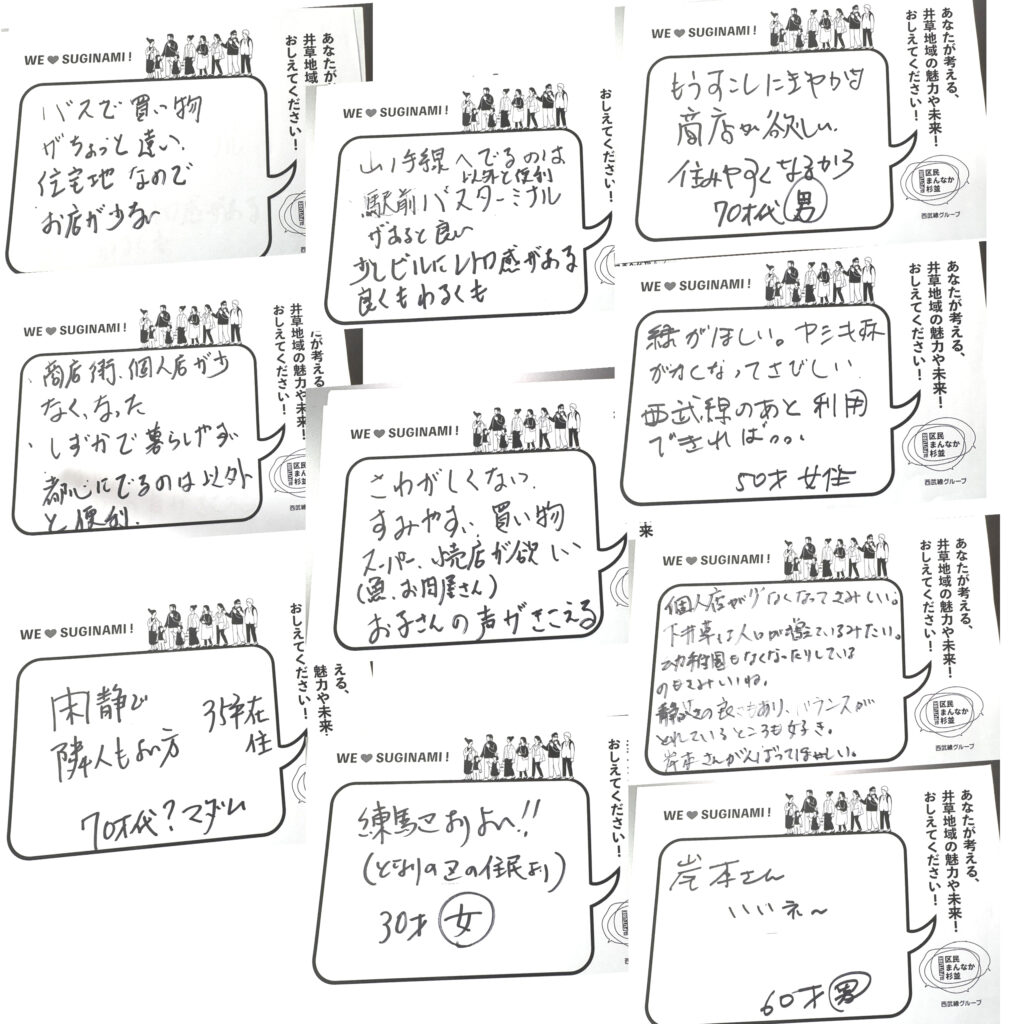 WE♥SUGINAMI!
あなたが
井草地域の
おしえてください!
バスで買い物
がちょっと遠い.
住宅地なので
お店が少ない
WE♥SUGINAMI!
おしえてください!
山ノ手線へでるのは
以外と便利
駅前バスターミナル
があると良い
少しビルにレトロ感がある
良くもわるくも
WE♥SUGINAMI!
あなたが考える、
井草地域の魅力や未来!
おしえてください!
もうすこしにぎやかな
商店が欲しい.
住みやすくなるから
70才代 男
区民
まんなか
杉並
西武線グループ
WE♥SUGINAMI!
あなたが考える、
井草地域の魅力や未来!
おしえてください!
商店街、個人店が少
なくなった
しずかで暮らしやすい
都心にでるのは以外
と便利.
WE♥SUGINAMI!
さわがしくない.
すみやすい 買い物
スーパー、小売店が欲しい
(魚、お肉屋さん)
お子さんの声がきこえる
WE♥SUGINAMI!
あなたが考える、
井草地域の魅力や未来!
おしえてください!
緑がほしい。ヤシキ林
がなくなってさびしい.
西武線のあと利用
できれば...
50才 女性
区民
まんなか
杉並
西武線グループ
WE♥SUGINAMI!
おしえてください!
閑静で
隣人もよい方
35年在
住
70才代?マダム
える、
魅力や未来
WE♥SUGINAMI!
おしえてください!
練馬区よりよい!!
(となりの区の住民より)
30才 女
来
WE♥SUGINAMI!
あなたが考える、
井草地域の魅力や未来!
おしえてください!
個人店が少なくなってさみしい。
下井草は人口が増えているみたい。
幼稚園もなくなったりしている
のもさみしいね。
静かさの良さもあり、バランスが
とれているところも好き。
岸本さんがんばってほしい。
区民
まんなか
杉並
西武線グループ
WE♥SUGINAMI!
あなたが考える、
井草地域の魅力や未来!
おしえてください!
岸本さん
いいネ〜
60才 男
区民
まんなか
杉並
西武線グループ